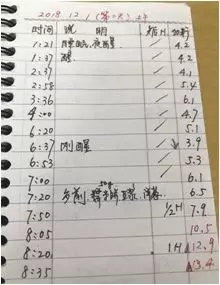 2018.12.1 (第二天)
时间 说明 短H 血糖
1:21 睡眠,夜醒 / 4.2
1:37 醒. / 4.2
2:37 / 4.1
2:58 / 5.4
3:36 / 6.1
4:00 / 4.7
6:20 / 5.1
6:37 刚醒 3.9
6:53 / 5.3
7:00 6.1
7:20 50g 6.5
7:50 1/2H 7.9
8:05 10.5
8:20 1H 12.9
8:35 13.4